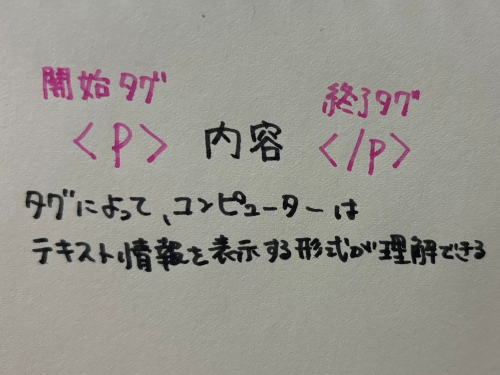 開始タグ 終了タグ
<p> 内容 </p>
タグによって、コンピューターは
テキスト情報を表示する形式が理解できる